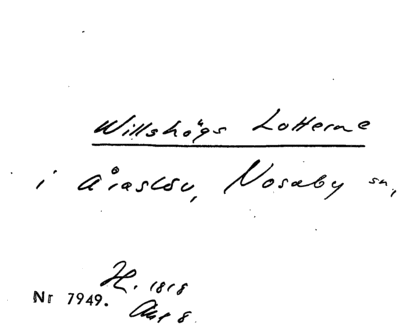 Willshögs Lotterne
i Åraslöv, Nosaby sn,
H. 1818
Nr 7949. Aug 8